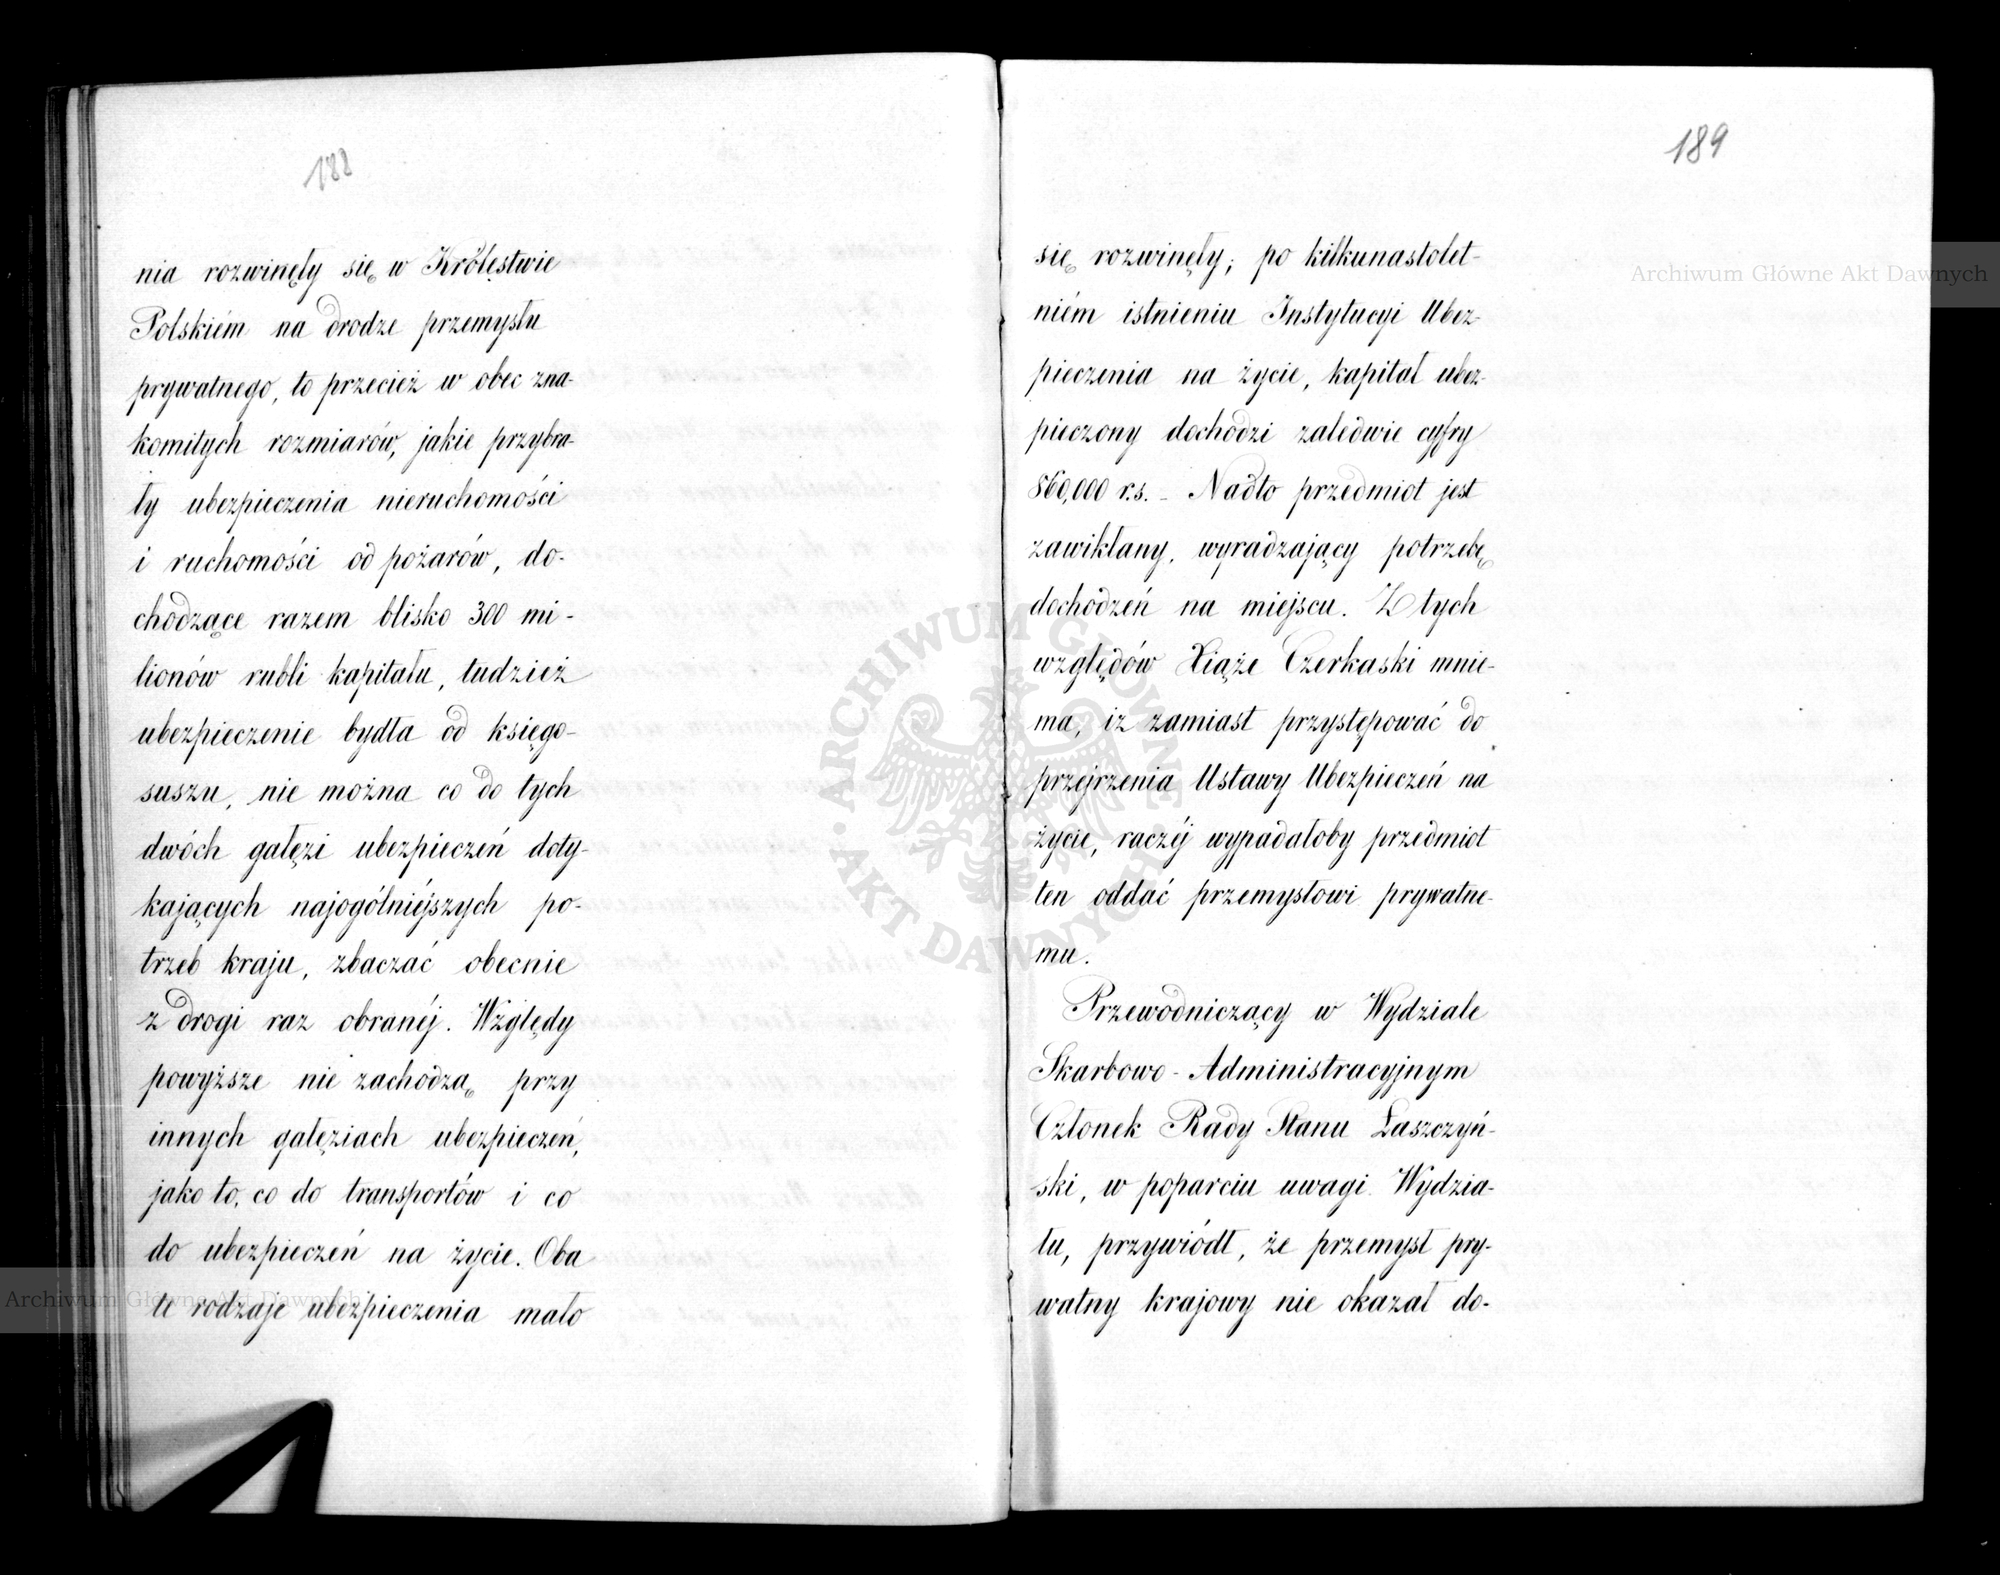 188
nia rozwinęły się w Królestwie
Polskiém na drodze przemysłu
prywatnego, to przecież w obec zna-
komitych rozmiarów, jakie przybra-
ły ubezpieczenia nieruchomości
i ruchomości od pożarów, do-
chodzące razem blisko 300 mi-
lionów rubli kapitału, tudzież
ubezpieczenie bydła od księgo-
suszu, nie można co do tych
dwóch gałęzi ubezpieczeń doty-
kających najogólniéjszych po-
trzeb kraju, zbaczać obecnie
z drogi raz obranéj. Względy
powyższe nie zachodzą przy
innych gałęziach ubezpieczeń,
jako to, co do transportów i co
do ubezpieczeń na życie. Oba
te rodzaje ubezpieczenia mało
189
się rozwinęły; po kilkunastolet-
niém istnieniu Instytucyi Ubez-
pieczenia na życie, kapitał ubez-
pieczony dochodzi zaledwie cyfry
860,000 r.s. - Nadto przedmiot jest
zawikłany, wyradzający potrzebę
dochodzeń na miejscu. Z tych
względów Xiąże Czerkaski mnie-
ma, iż zamiast przystępować do
przejrzenia Ustawy Ubezpieczeń na
życie, raczéj wypadałoby przedmiot
ten oddać przemysłowi prywatne-
mu.
Przewodniczący w Wydziale
Skarbowo-Administracyjnym
Członek Rady Stanu Łaszczyń-
ski, w poparciu uwagi Wydzia-
łu, przywiódł, że przemysł pry-
watny krajowy nie okazał do-
Archiwum Główne Akt Dawnych
Archiwum Główne Akt Dawnych
ARCHIWUM GŁÓWNE
AKT DAWNYCH